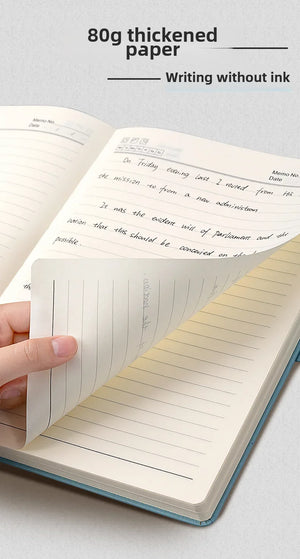 80g thickened
paper
Writing without ink
Memo No.
Date
Memo No.
Date
On Friday evening last I received from His
the mission to form a new administration
It was the evident will of Parliament and the
nation that this should be conceived on the
possible.